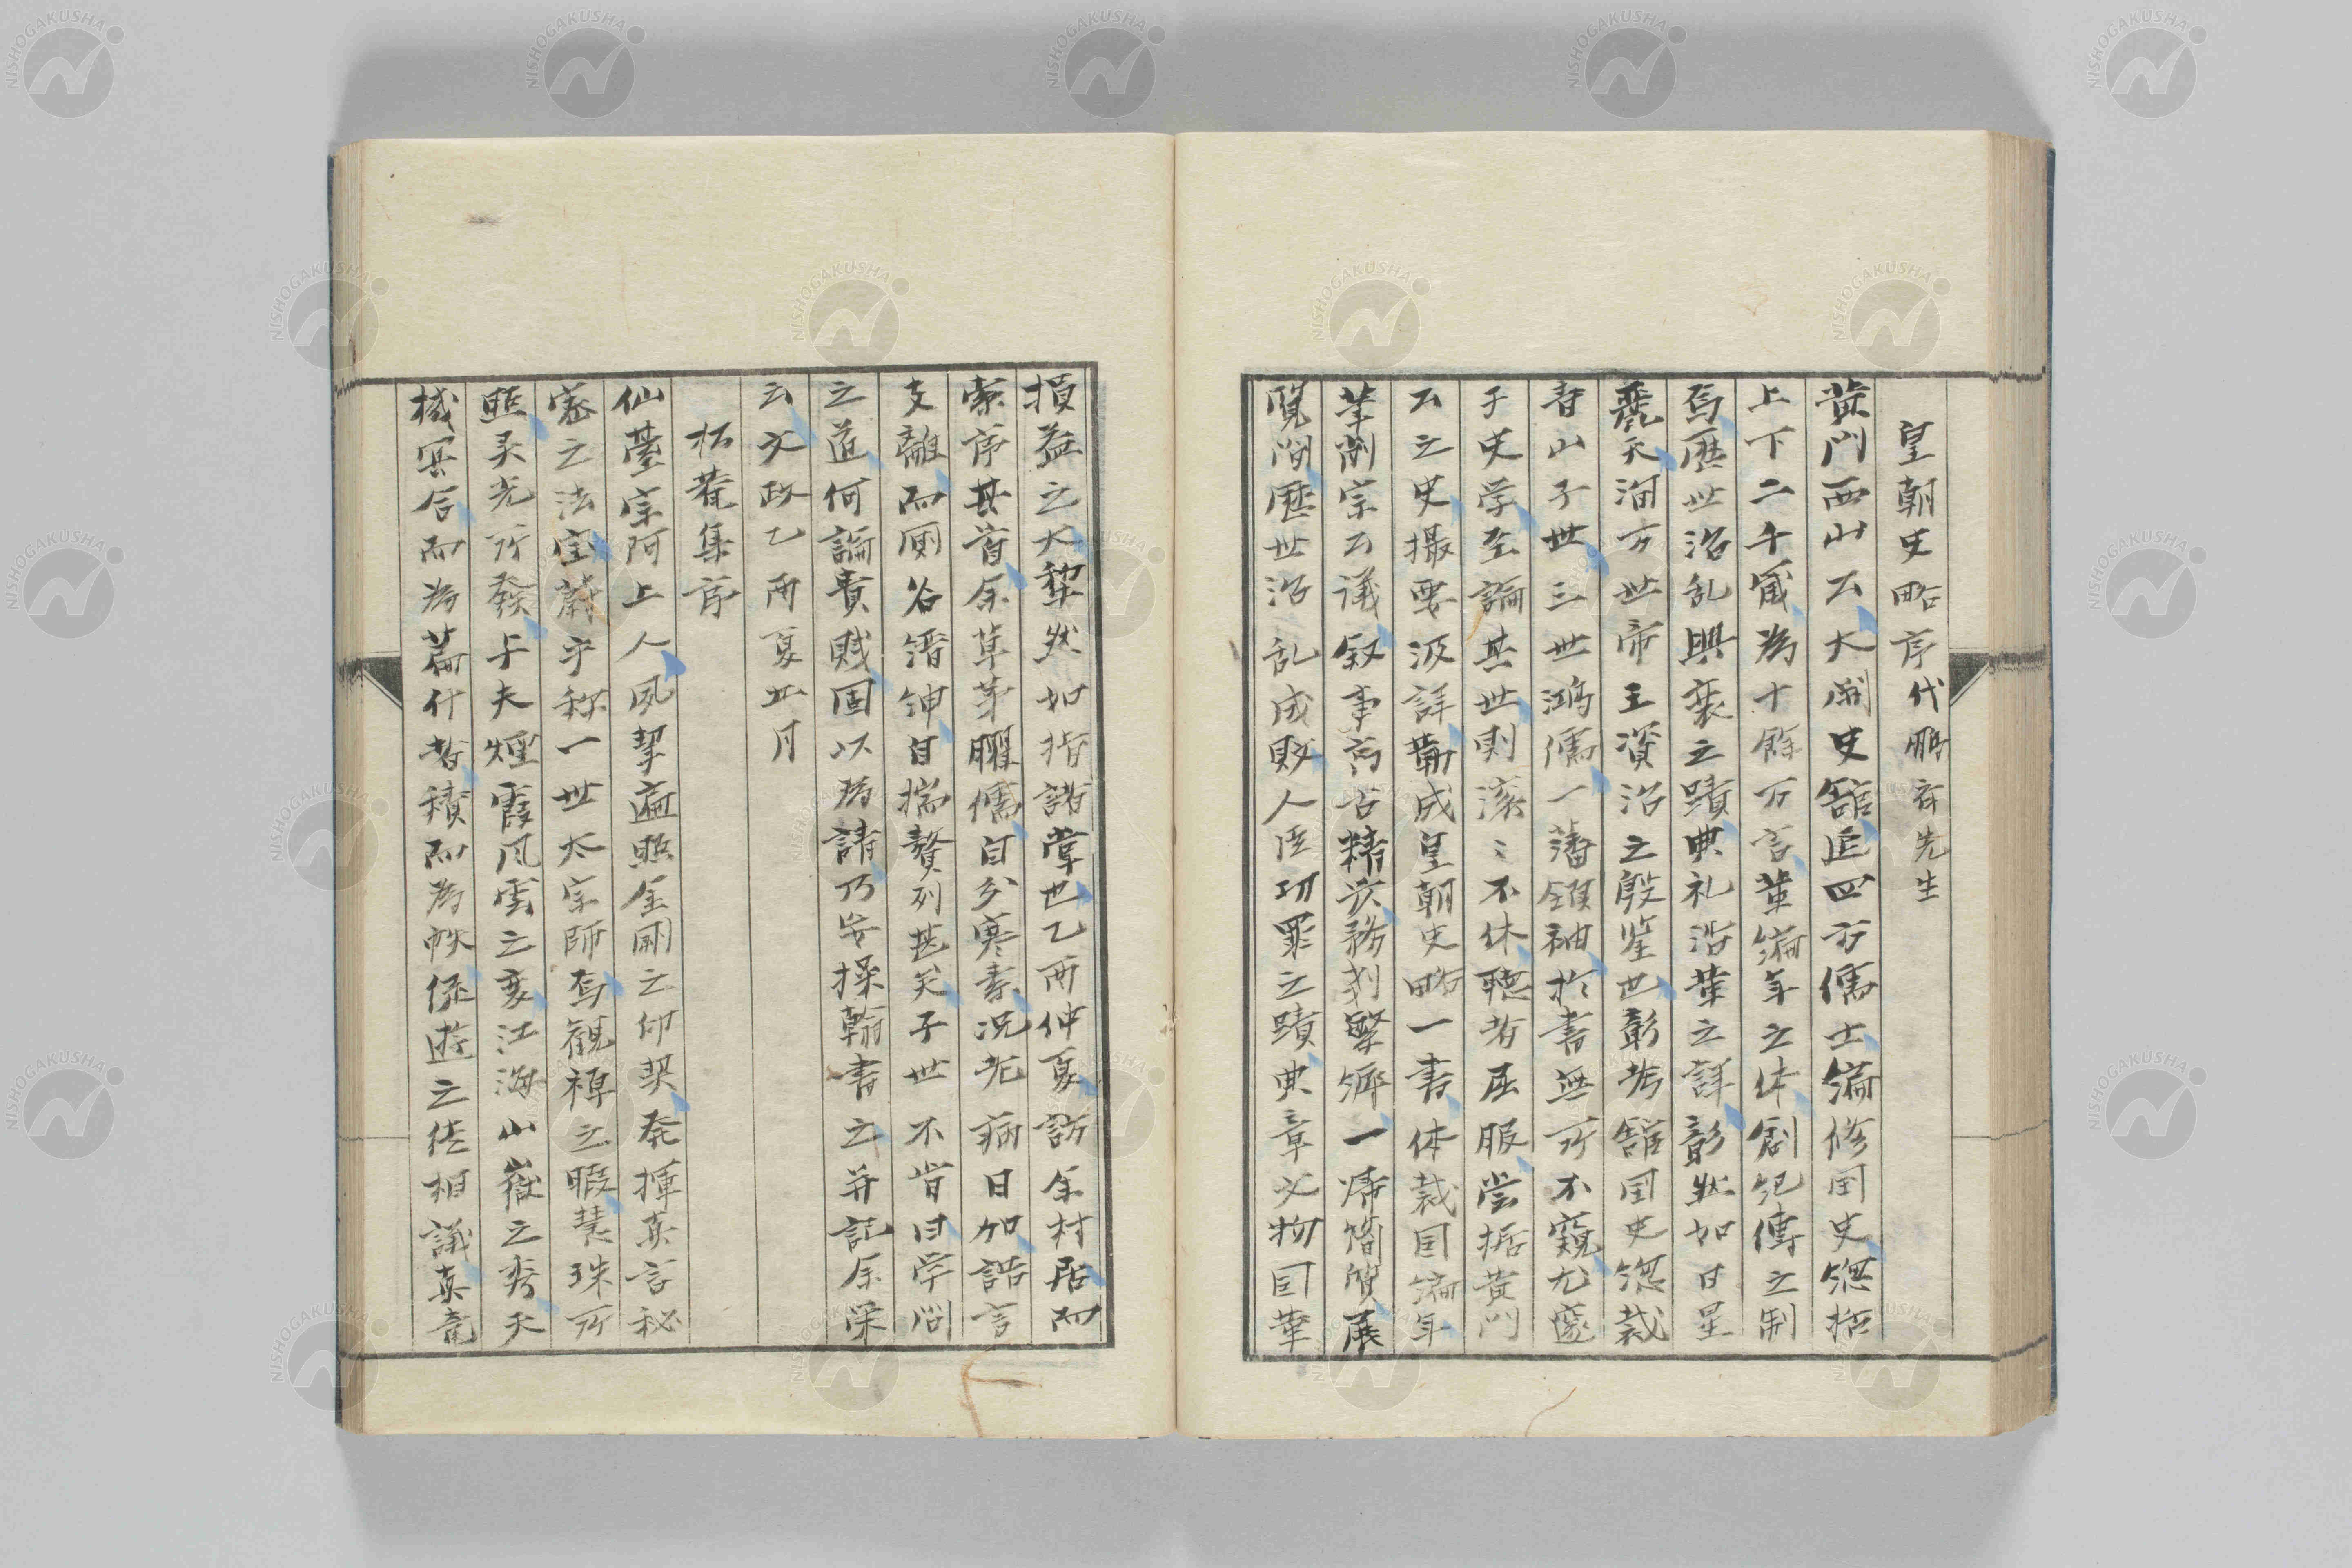 皇朝史略序 代鵬斎先生
黄門西山公大開史館延四方儒士編修国史総括
上下二千歳為十餘万言葉編年之体創紀傳之制
焉歴世治乱興衰之蹟典礼沿革之詳彰然如日星
麗天洵万世帝王資治之殷鑒也彰考館国史総裁
青山子世三世鴻儒一藩領袖於書無所不窺尤邃
于史学至論其世則滾〻不休聴者屈服嘗据黄門
公之史撮要汲詳勒成皇朝史略一書体裁因編年
筆削宗公議叙事高古精淡務刈繁濟一帰簡質展
覧間歴世治乱成敗人臣功罪之蹟典章文物因革
損益之大犂然如指諸掌也乙酉仲夏訪余村居而
索序其首余草茅臞儒自分寒素况老病日加詰言
支離而厠名縉紳自揣贅列甚矣子世不肯曰学問
之道何論貴賎固以為請乃安操翰書之并記余栄
云文政乙酉夏五月
柘菴集序
仙臺宗阿上人夙挈遍照金剛之印契発揮真言秘
密之法宝蔚乎称一世大宗師焉観禅之暇慧珠所
照霊光所發与夫煙霞風雲之変江海山嶽之秀天
機冥合而為篇什者積而為帙係遊之徒相議真竜